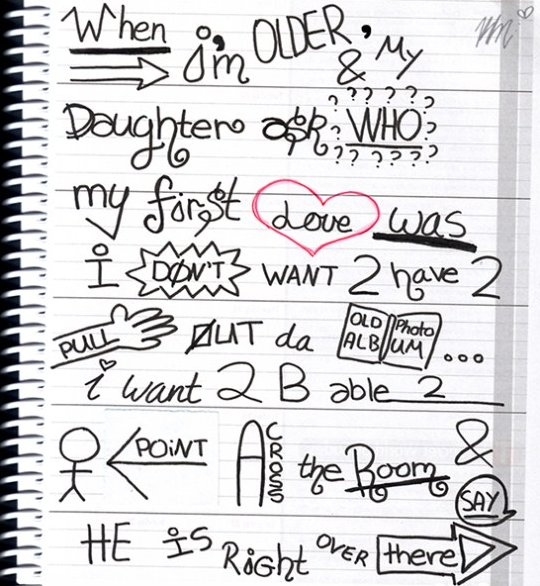 When i'm OLDER, & My
Daughter ask ????? ? WHO ? ? ?????
my first Love was
i DON'T WANT 2 have 2
PULL OUT da OLD Photo ALBUM...
i want 2 B able 2
POiNT ACROSS the Room & SAY
HE iS Right OVER there